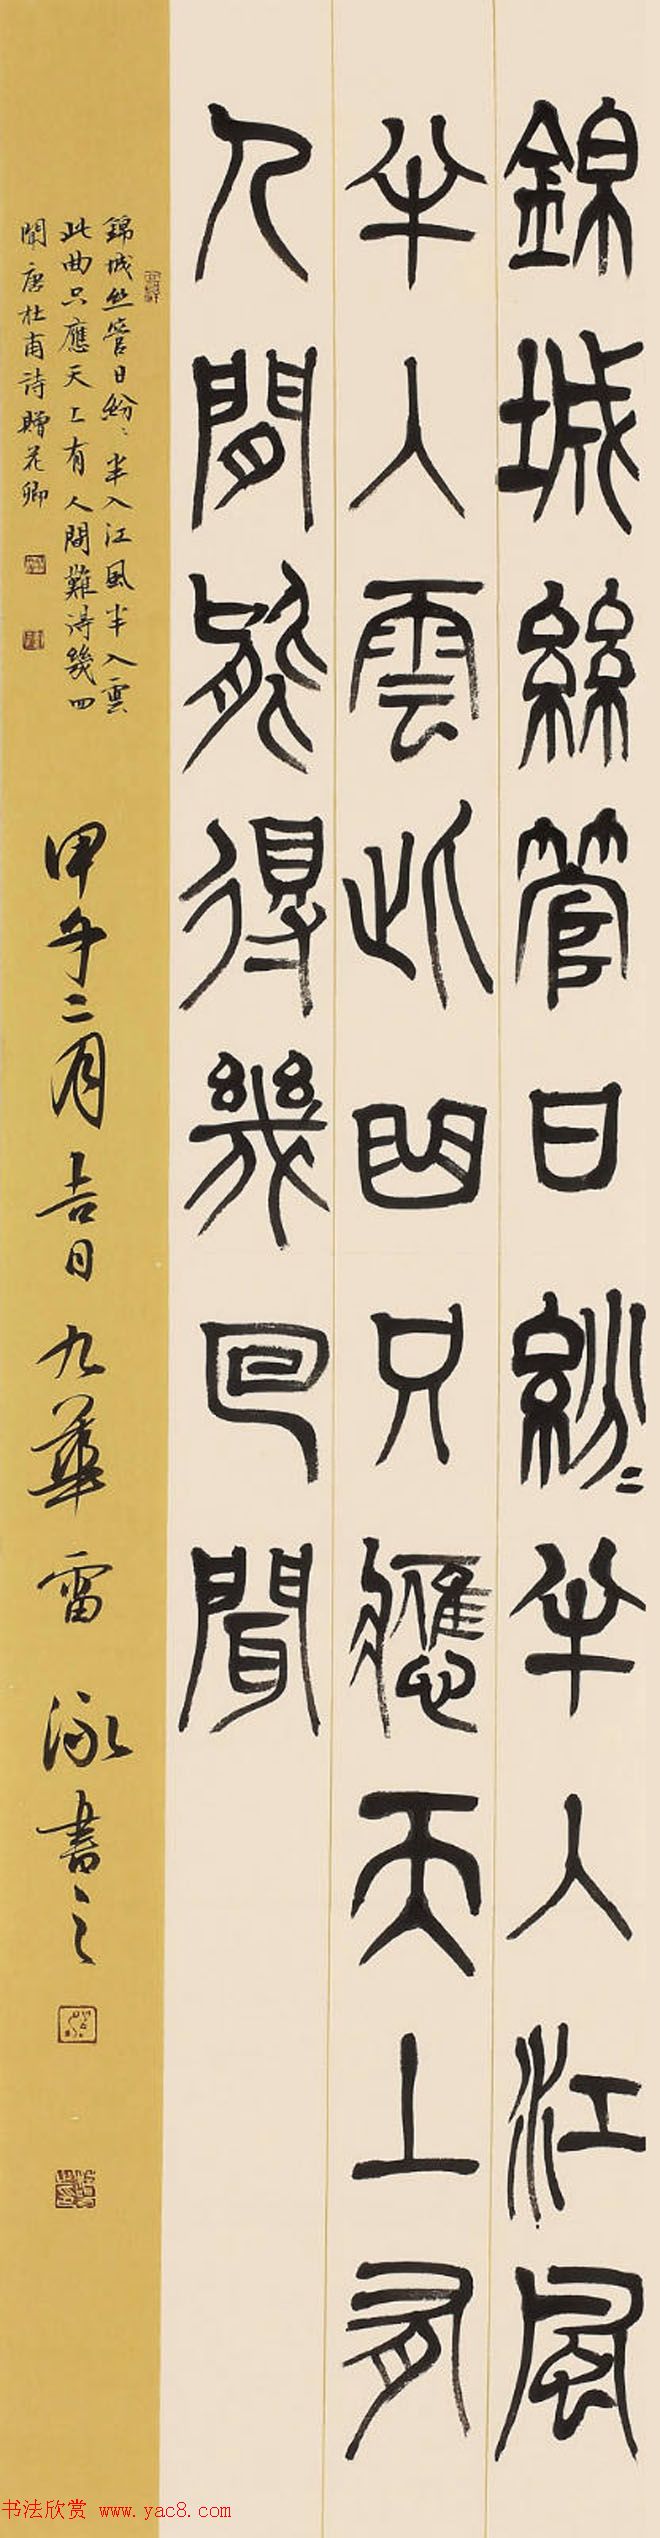 錦城絲管日紛〻半入江風
半入雲此曲只應天上有
人間能得幾回聞
錦城丝管日紛〻半入江風半入雲
此曲只應天上有人間難得幾回
聞唐杜甫詩贈花卿
甲午二月吉日九華雷泳書之
书法欣赏 www.yac8.com